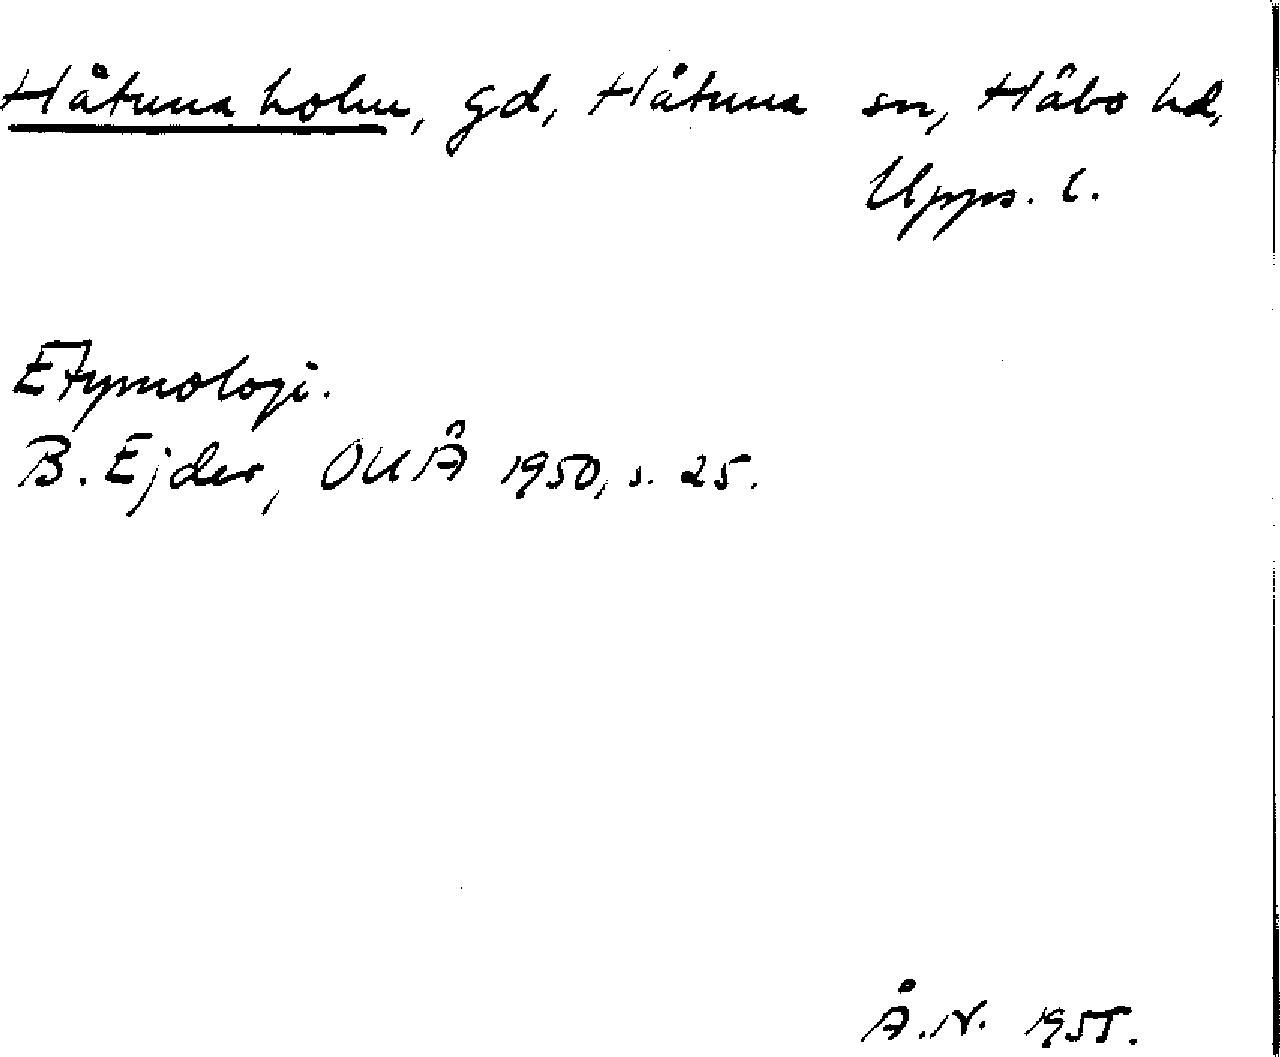 Håtunaholm, gd, Håtuna sn, Håbo hd,
Upps. l.
Etymologi.
B. Ejder, OUÅ 1950, s. 25.
Å.N. 1955.